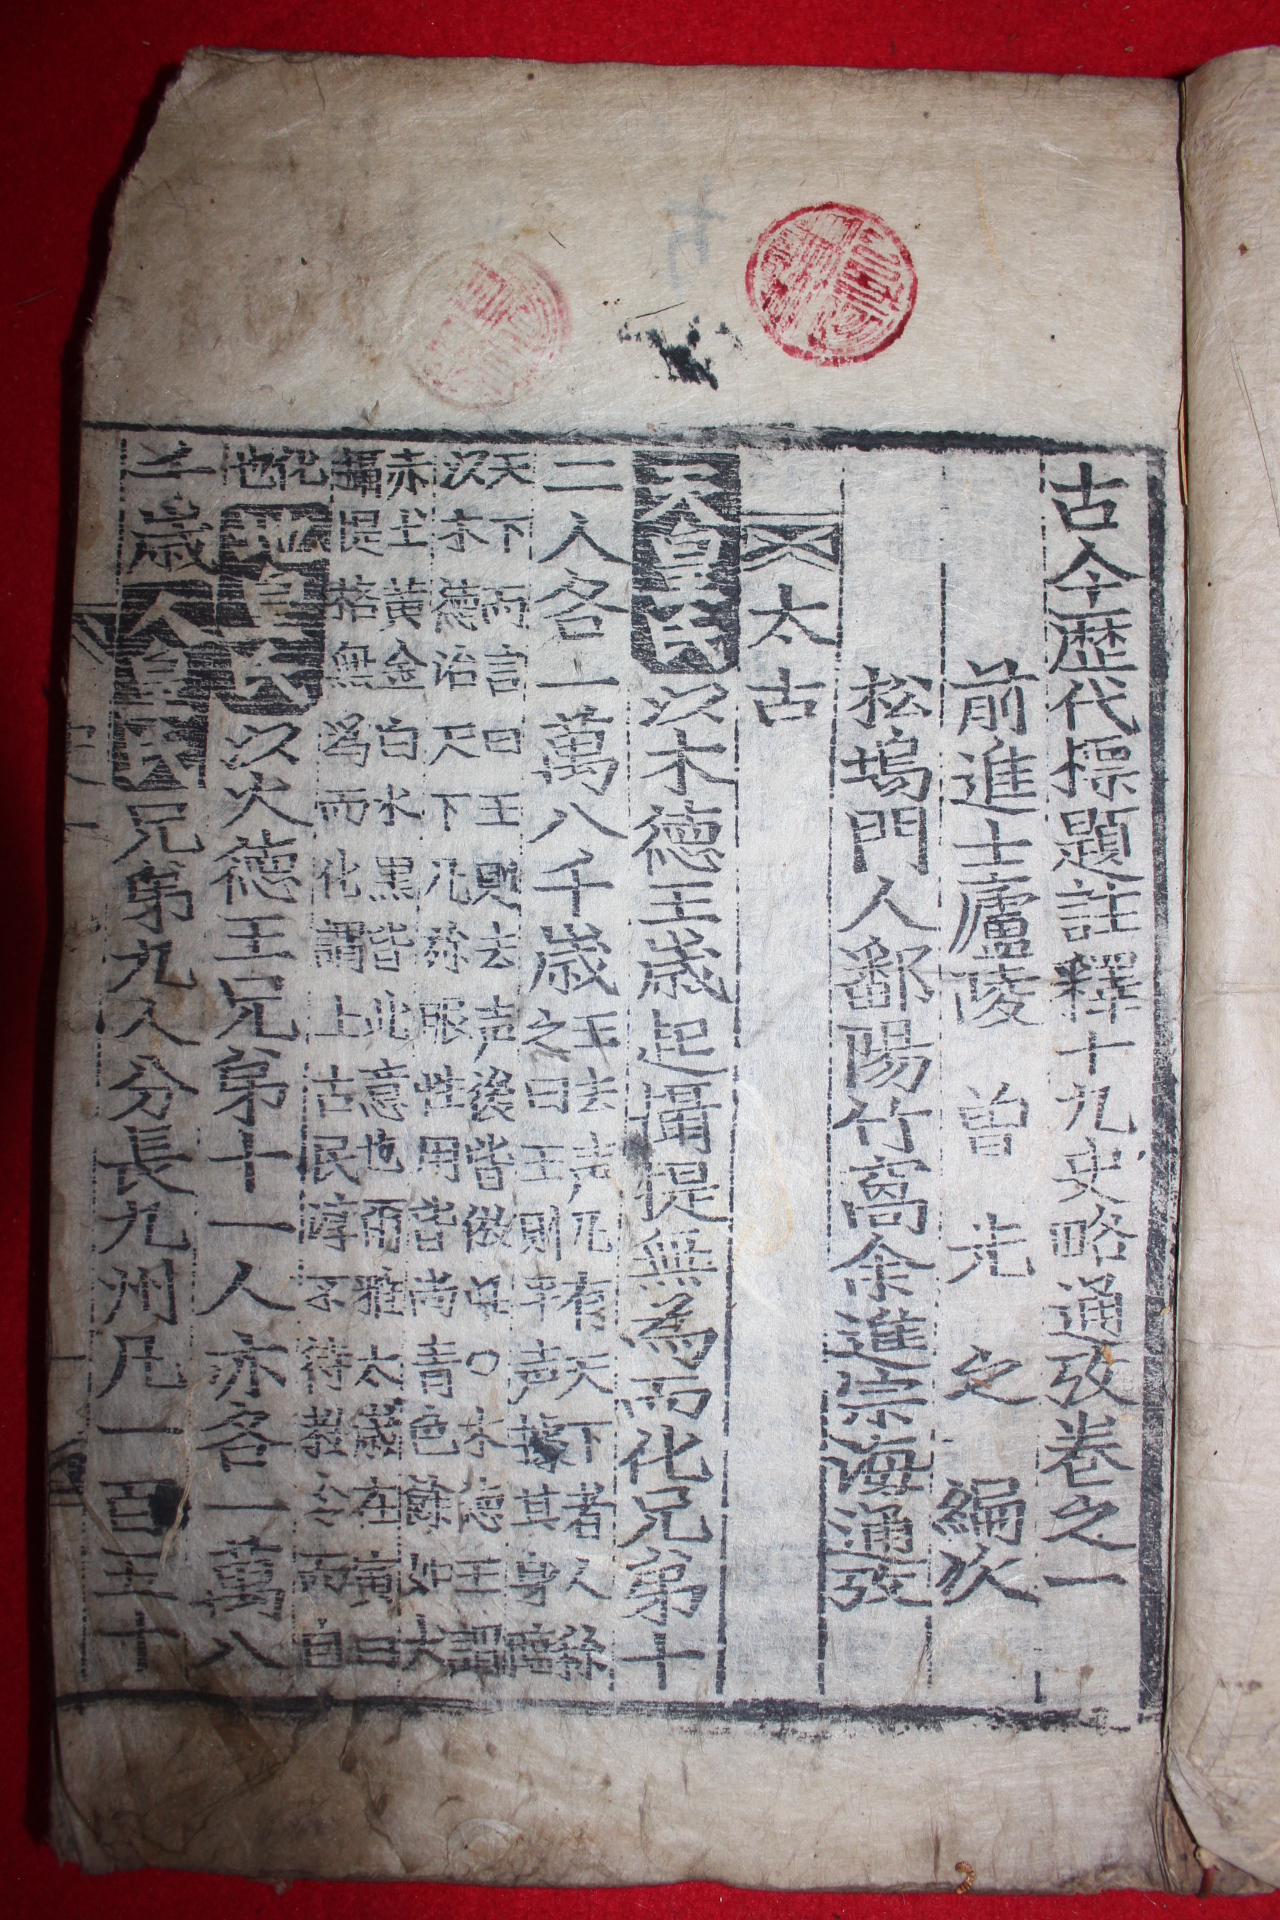 古今歴代標題註釋十九史略通攷卷之一
前進士廬陵曽先之編次
松塢門人鄱陽竹窩余進宗海通攷
太古
天皇氏以木德王歲起攝提無為而化兄弟十
二人各一萬八千歲
王去声凡有天下者人稱
之曰王則平声據其身臨
天下而言曰王則去声後皆倣此○木德王謂
以木德治天下凡稱服牲用皆尚青色餘如大
赤土黃金白水黒皆此意也爾雅太歲在寅曰
攝提格無爲而化謂上古民淳不待敎令而自
化
也
地皇氏以火德王兄弟十一人亦各一萬八
千歲人皇氏兄弟九人分長九州凡一百五十